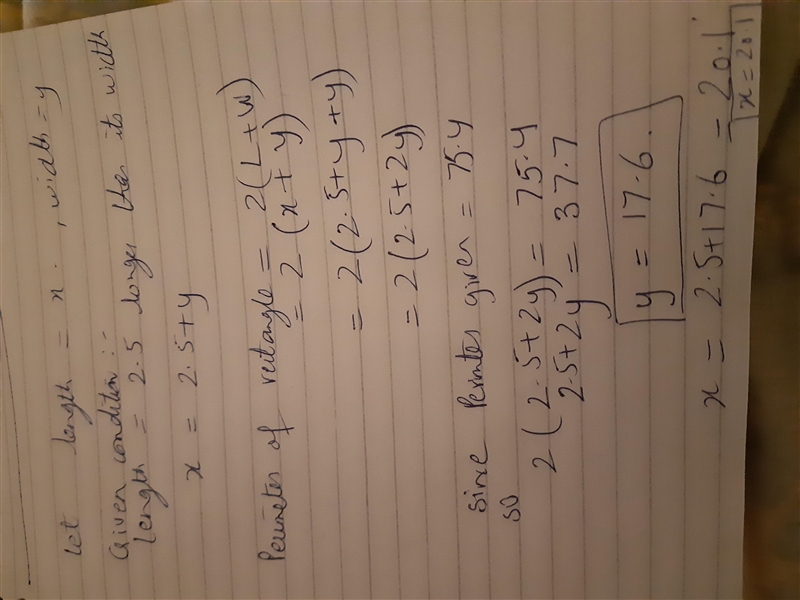 Let length = x. , width = y
Given condition :-
Length = 2.5 longer than its width
x = 2.5+y
Perimeter of rectangle = 2(L+W)
= 2(x+y)
= 2(2.5+y+y)
= 2(2.5+2y)
since Perimter given = 75.4
so
2(2.5+2y) = 75.4
2.5+2y = 37.7
y = 17.6.
x = 2.5+17.6 = 20.1
x = 20.1